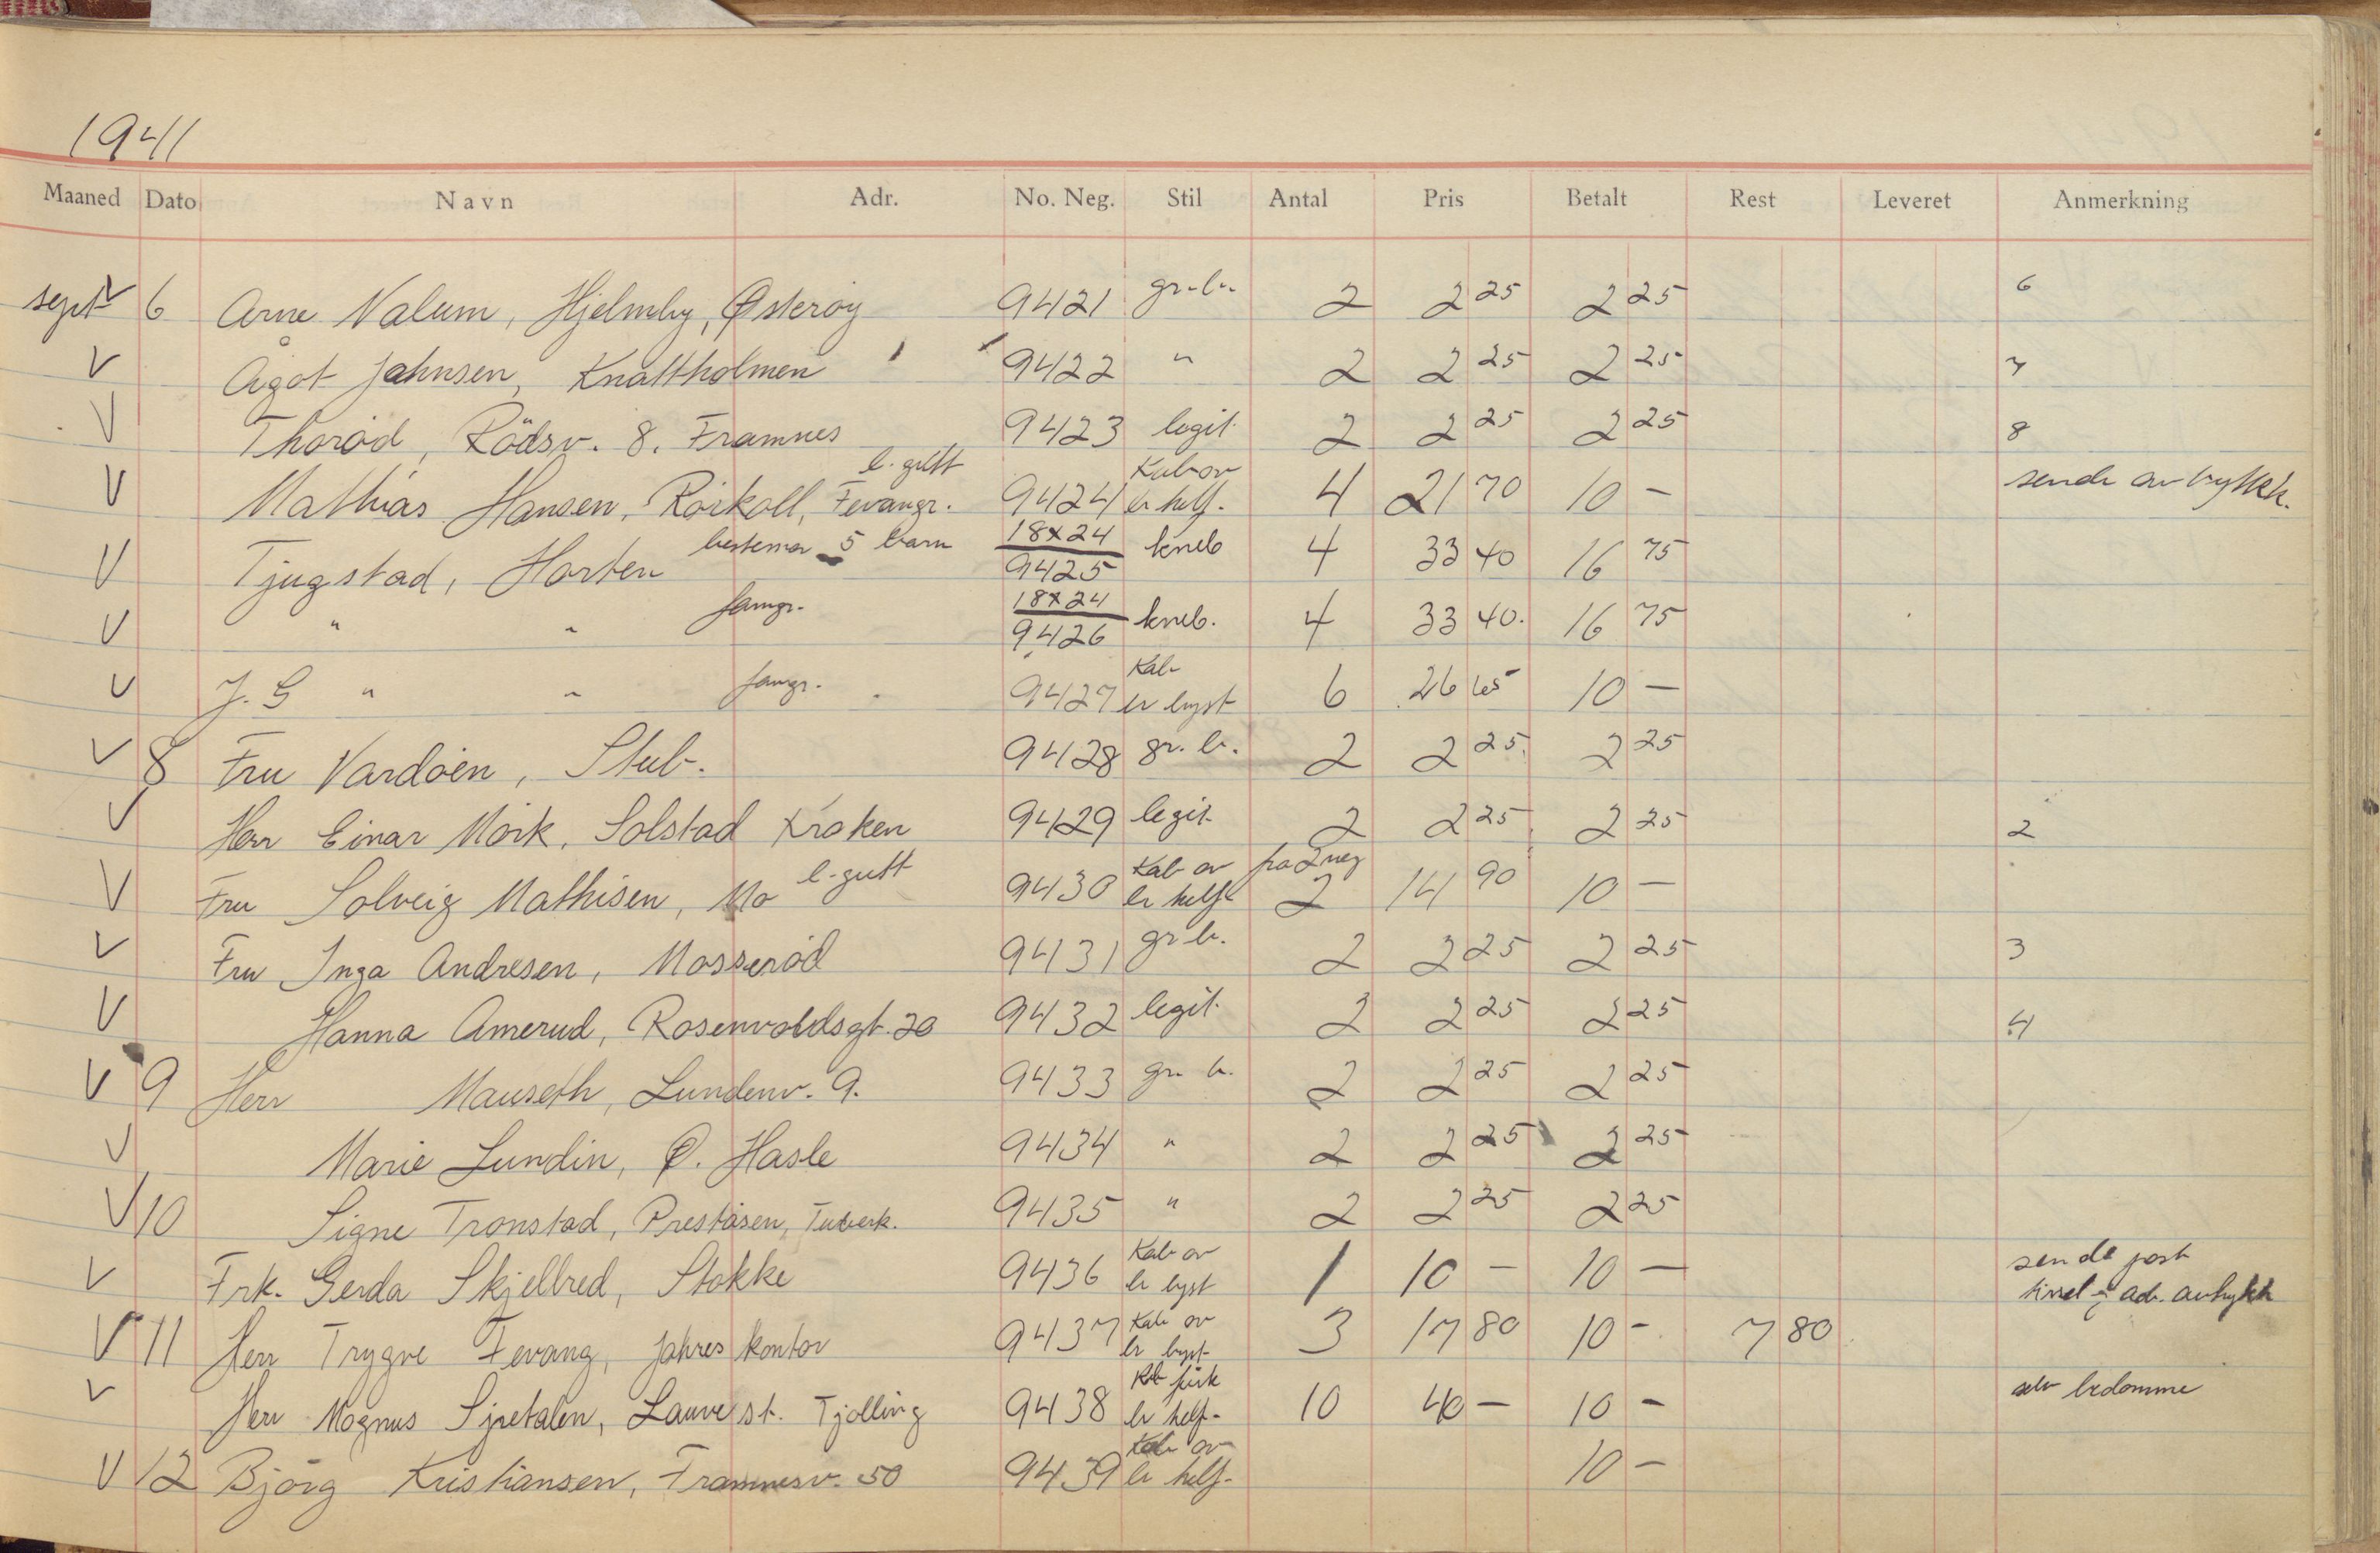 1941
Maaned Dato Navn Adr. No. Neg. Stil Antal Pris Betalt Rest Leveret Anmerkning
sept V 6 Arne Valum, Hjelmby, Østerøy 9421 gr. b. 2 2 25 2 25 6
V Ågot Jahnsen, Knattholmen 9422 " 2 2 25 2 25 7
V Thorød, Rödsv. 8. Framnes 9423 legit. 2 2 25 2 25 8
V Mathias Hansen, Röikoll, Fevangr. l. gutt 9424 Kab av br helf. 4 21 70 10 — sende avtrykk.
V Tjugstad, Horten bestemor 5 barn 18x24 9425 kneb 4 33 40 16 75
V " " famgr. 18x24 9426 kneb. 4 33 40. 16 75
V J. G " " famgr. 9427 Kab br byst 6 26 65 10 —
V 8 Fru Vardöen, Stub. 9428 gr. b. 2 2 25 2 25
V Herr Einar Mörk. Solstad Kraken 9429 legit 2 2 25 2 25 2
V Fru Solveig Mathisen, Mo l. gutt 9430 Kab av br helf fra 2 neg 2 14 90 10 —
V Fru Inga Andresen, Mosserød 9431 gr b. 2 2 25 2 25 3
V Hanna Amerud, Rosenvoldsgt. 20 9432 legit. 2 2 25 2 25 4
V 9 Herr Mauseth, Lundenv. 9. 9433 gr. b. 2 2 25 2 25
V Marie Lundin, Ø. Hasle 9434 " 2 2 25 2 25
V 10 Signe Tronstad, Preståsen, Tuberk. 9435 " 2 2 25 2 25
V Frk. Gerda Skjelbred, Stokke 9436 Kab av br byst 1 10 — 10 — sende post
avtrykk
V 11 Herr Trygve Fevang, Jahres kontor 9437 Kab av br byst 3 17 80 10 - 7 80
V Herr Magnus Sjøetalen, Lauve st. Tjølling 9438 Kab br helf- 10 40 — 10 - selv bedømme
V 12 Bjørg Kristiansen, Framnesv. 50 9439 Kab av br helf- 10 —